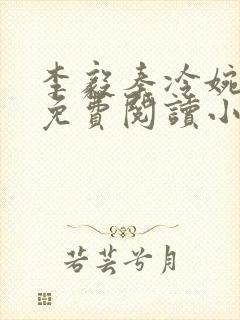 李毅秦冷婉
免費閱讀小
若芸兮月